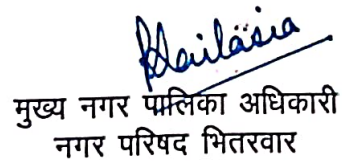 मुख्य नगर पालिका अधिकारी
नगर परिषद भितरवार